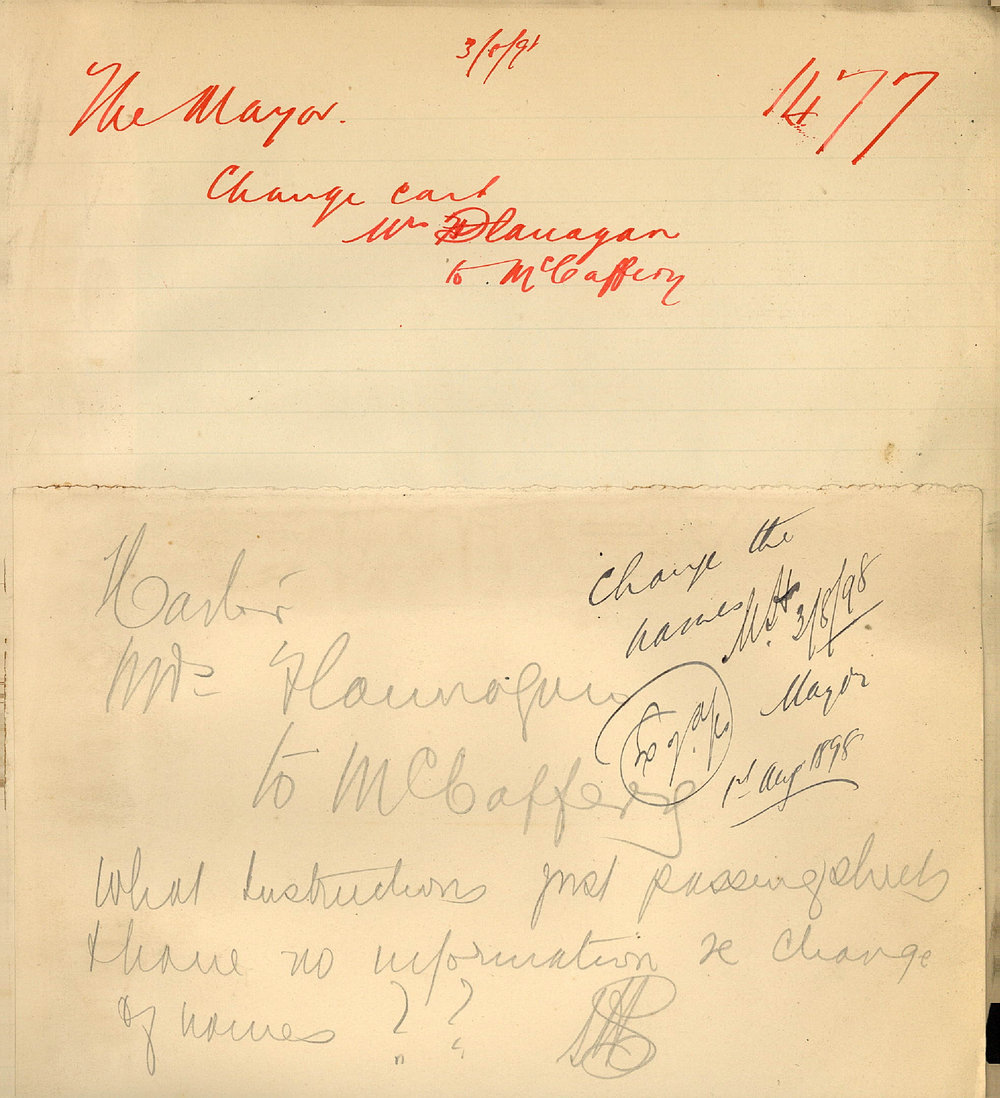 3/8/98
The Mayor.
1477
Change cart
Mrs Flanagan
to McCaffery
Change the
names
3/8/98
Mayor
1st Aug 1898
Carter
Mrs Flannagan
to McCaffery
What instructions just passing sheets
& have no information re change
of names ? ?